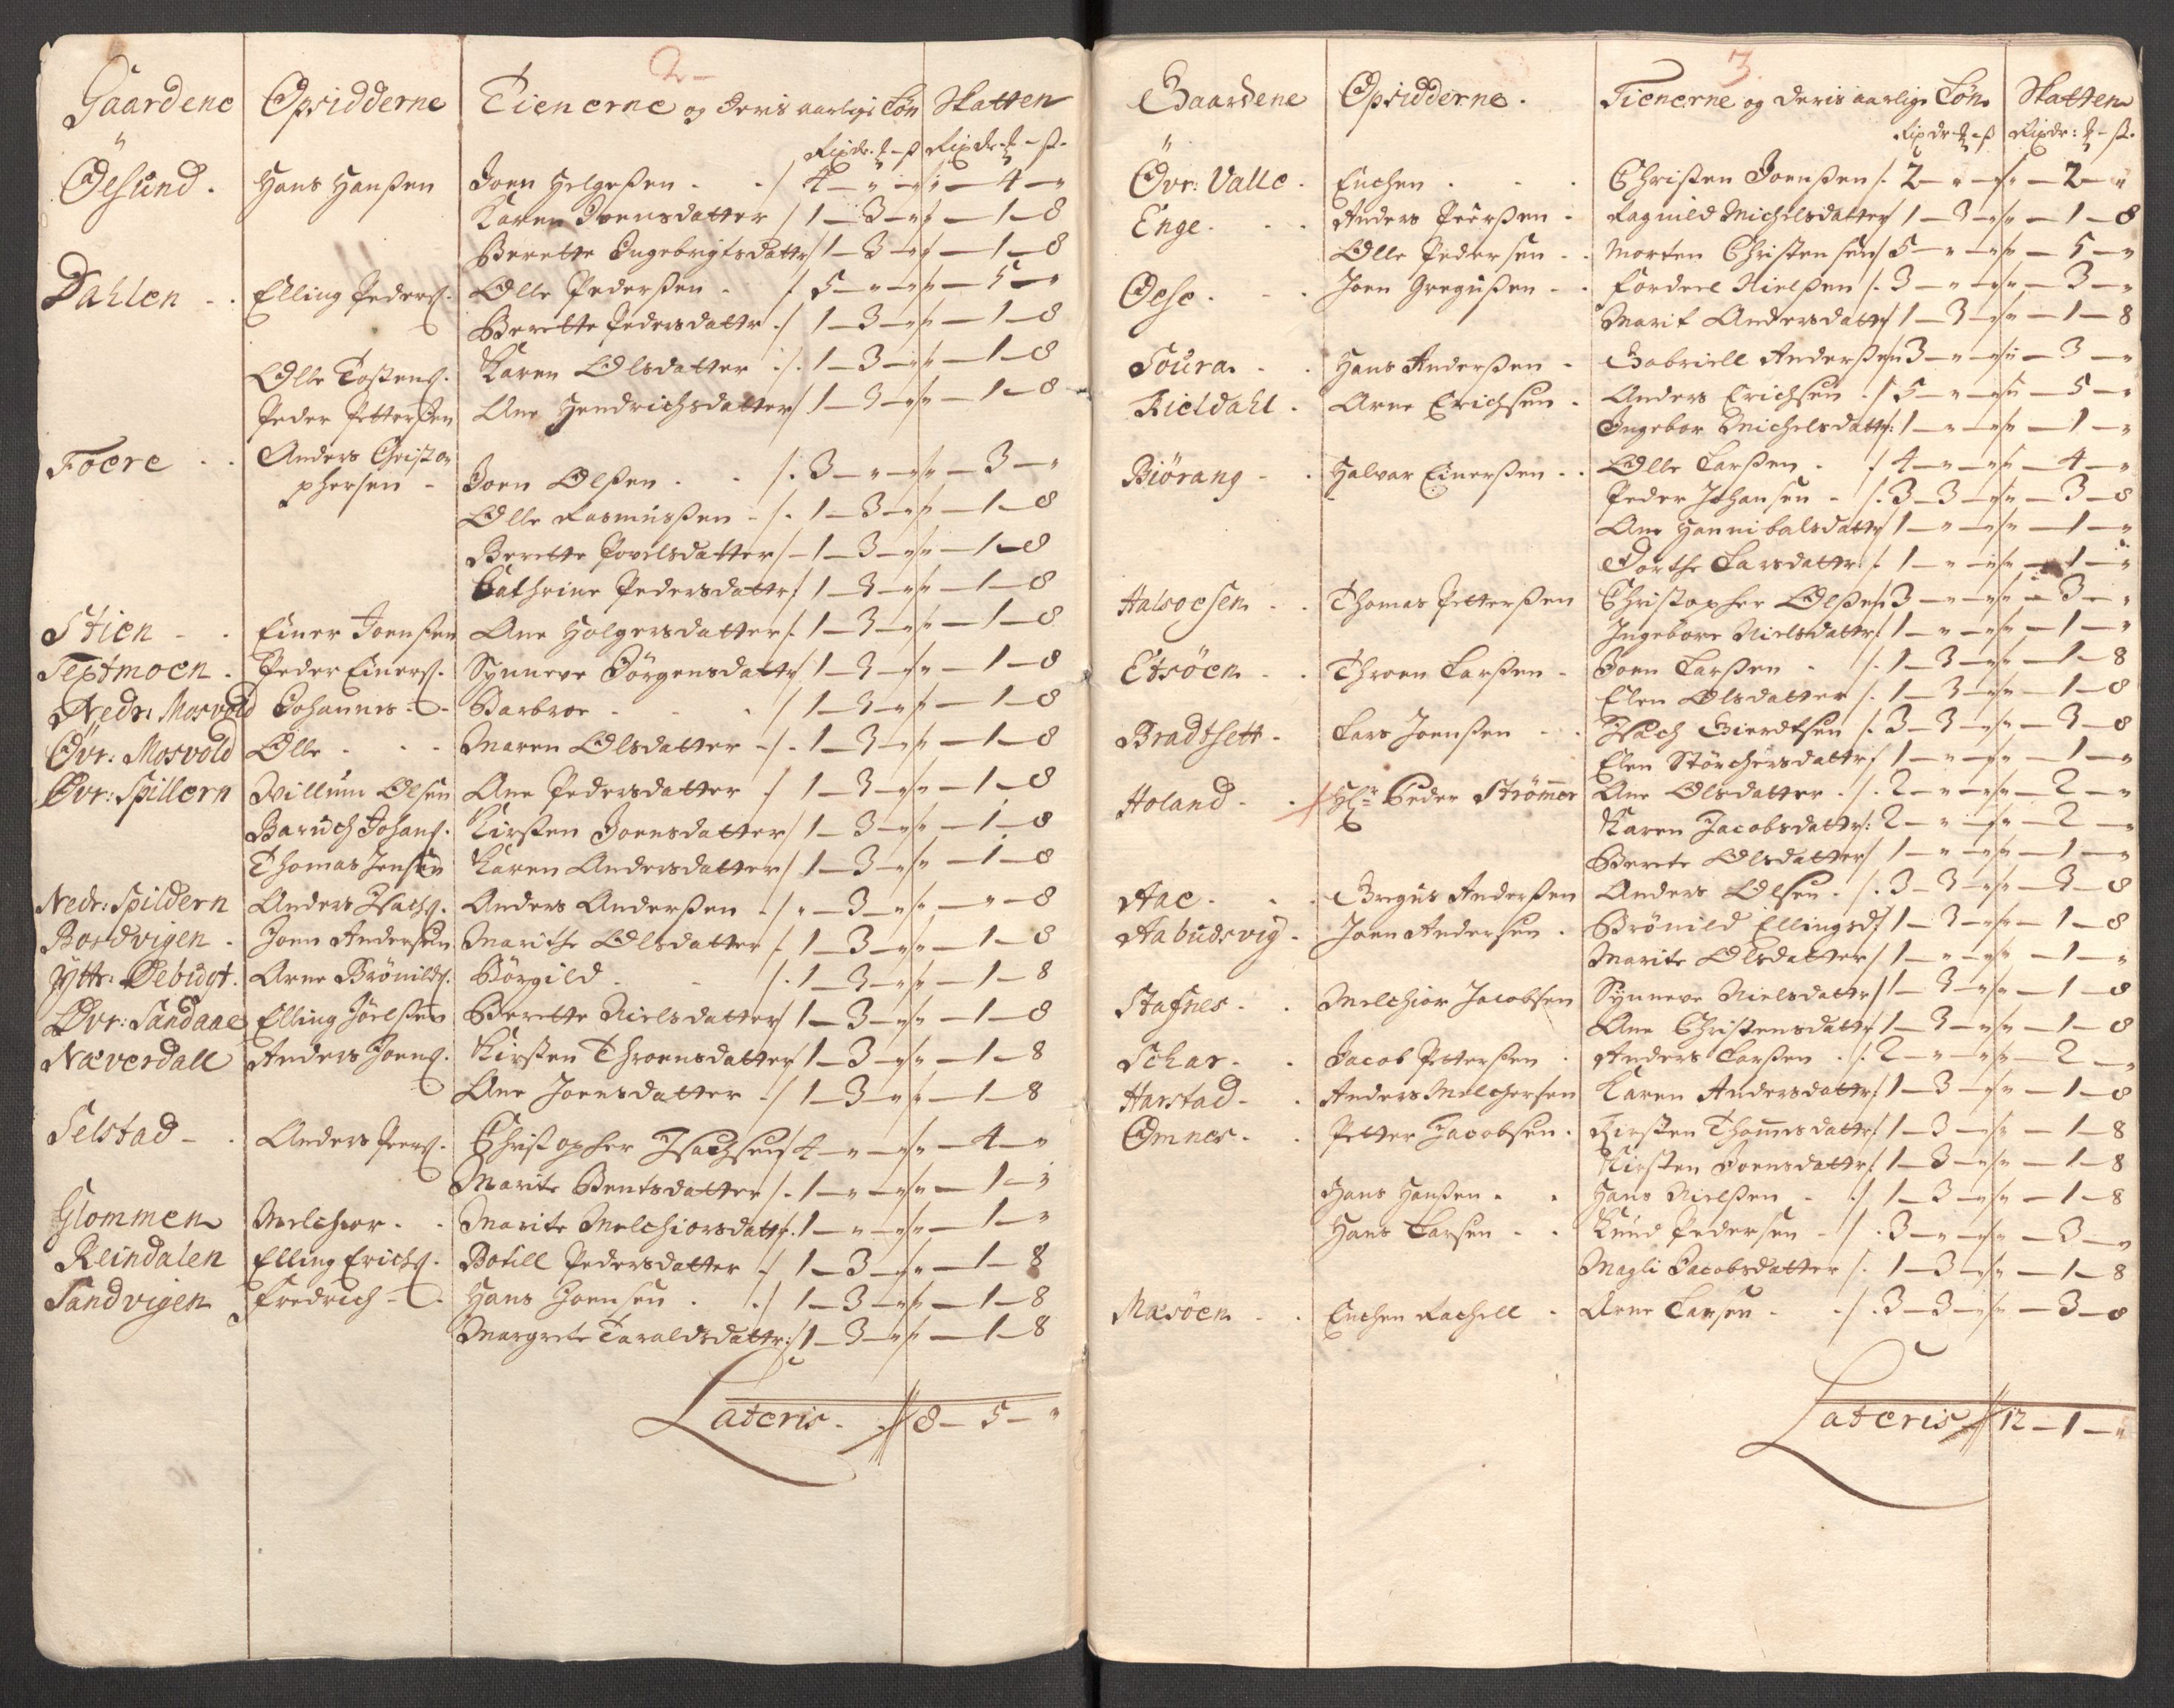 2
Gaardene Opsidderne Tienerne og deris aarlige Løn Skatten
Rixdr. ß Rixdr. ß
Øesund. Hans Hanßen Joen Helgeßen 4 - " - " " - 4 - "
Karen Joensdatter 1 - 3 - " " - 1 - 8
Berette Ingebrigtsdattr 1 - 3 - " " - 1 - 8
Dahlen Elling Peders. Olle Pederßen 5 - " - " " - 5 - "
Berette Pedersdattr 1 - 3 - " " - 1 - 8
Olle Tostens. Karen Olsdatter 1 - 3 - " " - 1 - 8
Peder Petterßen Ane Hendrichsdatter 1 - 3 - " " - 1 - 8
Foere Anders Christo
phersen Joen Olßen 3 - " - " " - 3 - "
Olle Rasmußen 1 - 3 - " " - 1 - 8
Berette Povelsdatter 1 - 3 - " " - 1 - 8
Cathrine Pedersdattr 1 - 3 - " " - 1 - 8
Stien Einer Joenßen Ane Holgersdatter 1 - 3 - " " - 1 - 8
Teptmoen. Peder Einers. Synneve Jörgensdattr 1 - 3 - " " - 1 - 8
Nedr: Mosvold Johannes Barbroe 1 - 3 - " " - 1 - 8
Øvr: Mosvold Olle Maren Olsdatter 1 - 3 - " " - 1 - 8
Øvr: Spillern Villum Olsen Ane Pedersdatter 1 - 3 - " " - 1 - 8
Baruch Johans. Kirsten Joensdatter 1 - 3 - " " - 1 - 8
Thomas Jensen Karen Andersdatter 1 - 3 - " " - 1 - 8
Nedr: Spildern Anders Isachs. Anders Anderßen " - 3 - " " - " - 8
Bordvigen. Joen Andersen Marithe Olsdatter 1 - 3 - " " - 1 - 8
Yttr: Debugt. Arne Brönilds. Börgild 1 - 3 - " " - 1 - 8
Øvr: Sandaae Elling Joelßen Berette Nielsdatter 1 - 3 - " " - 1 - 8
Næverdall Anders Joens. Kirsten Throensdatter 1 - 3 - " " - 1 - 8
Ane Joensdatter 1 - 3 - " " - 1 - 8
Selstad Anders Peers. Christopher Isachsen 4 - " - " " - 4 - "
Marite Bentsdatter 1 - " - " " - 1 - "
Glommen Melchior Marite Melchiorsdattr. 1 - " - " " - 1 - "
Reindalen Elling Erichs. Botill Pedersdatter 1 - 3 - " " - 1 - 8
Sandvigen Fredrich Hans Joensen 1 - 3 - " " - 1 - 8
Margrete Taraldsdattr: 1 - 3 - " " - 1 - 8
Lateris 8 - 5 - "
3
Gaardene Opsidderne. Tienerne og deris aarlige Løn Skatten
Rixdr ß Rixdr: ß
Øvr: Valle Enchen Christen Joenßen 2 - " - " " - 2 - "
Enge Anders Peerßen Ragnild Michelsdatter 1 - 3 - " " - 1 - 8
Olle Pedersen Morten Christensen 5 - " - " " - 5 - "
Oese Joen Gregußen Fordeel Nielßen 3 - " - " " - 3 - "
Marit Andersdattr 1 - 3 - " " - 1 - 8
Soura Hans Anderßen Gabriell Anderßen 3 - " - " " - 3 - "
Kieldahl Arne Erichsen Anders Erichsen 5 - " - " " - 5 - "
Ingebor Michelsdattr 1 - " - " " - 1 - "
Biörang Halvar Einerßen Olle Larßen 4 - " - " " - 4 - "
Peder Johansen 3 - 3 - " " - 3 - 8
Ane Hannibalsdattr 1 - " - " " - 1 - "
Dorthe Larsdattr 1 - " - " " - 1 - "
Halsoesen Thomas Petterßen Christopher Olßen 3 - " - " " - 3 - "
Ingebore Nielsdattr 1 - " - " " - 1 - "
Etsöen Throen Larßen Joen Larßen 1 - 3 - " " - 1 - 8
Elen Olsdatter 1 - 3 - " " - 1 - 8
Bradtsett Lars Joenßen Isach Gierdtsen 3 - 3 - " " - 3 - 8
Elen Störchersdattr 1 - " - " " - 1 - "
Holand Hr Peder Strømer Ane Olsdatter 2 - " - " " - 2 - "
Karen Jacobsdattr: 2 - " - " " - 2 - "
Berete Olsdatter 1 - " - " " - 1 - "
Aae Gregus Anderßen Anders Olsen 3 - 3 - " " - 3 - 8
Aabudsvig Joen Andersen Brönild Ellingsd 1 - 3 - " " - 1 - 8
Marite Olsdatter 1 - " - " " - 1 - "
Stafnes Melchior Jacobsen Synneve Nielsdattr 1 - 3 - " " - 1 - 8
Ane Christensdattr 1 - 3 - " " - 1 - 8
Schar Jacob Petterßen Anders Larßen 2 - " - " " - 2 - "
Harstad Anders Melchersen Karen Andersdattr 1 - 3 - " " - 1 - 8
Omnes Petter Jacobsen Kirsten Thomesdattr 1 - 3 - " " - 1 - 8
Kirsten Joensdattr 1 - 3 - " " - 1 - 8
Hans Hanßen Hans Nielßen 1 - 3 - " " - 1 - 8
Hans Larsen Knud Pedersen 3 - " - " " - 3 - "
Magli Jacobsdatter 1 - 3 - " " - 1 - 8
Mæsöen Enchen Rachell Arne Larsen 3 - 3 - " " - 3 - 8
Lateris 12 - 1 - "